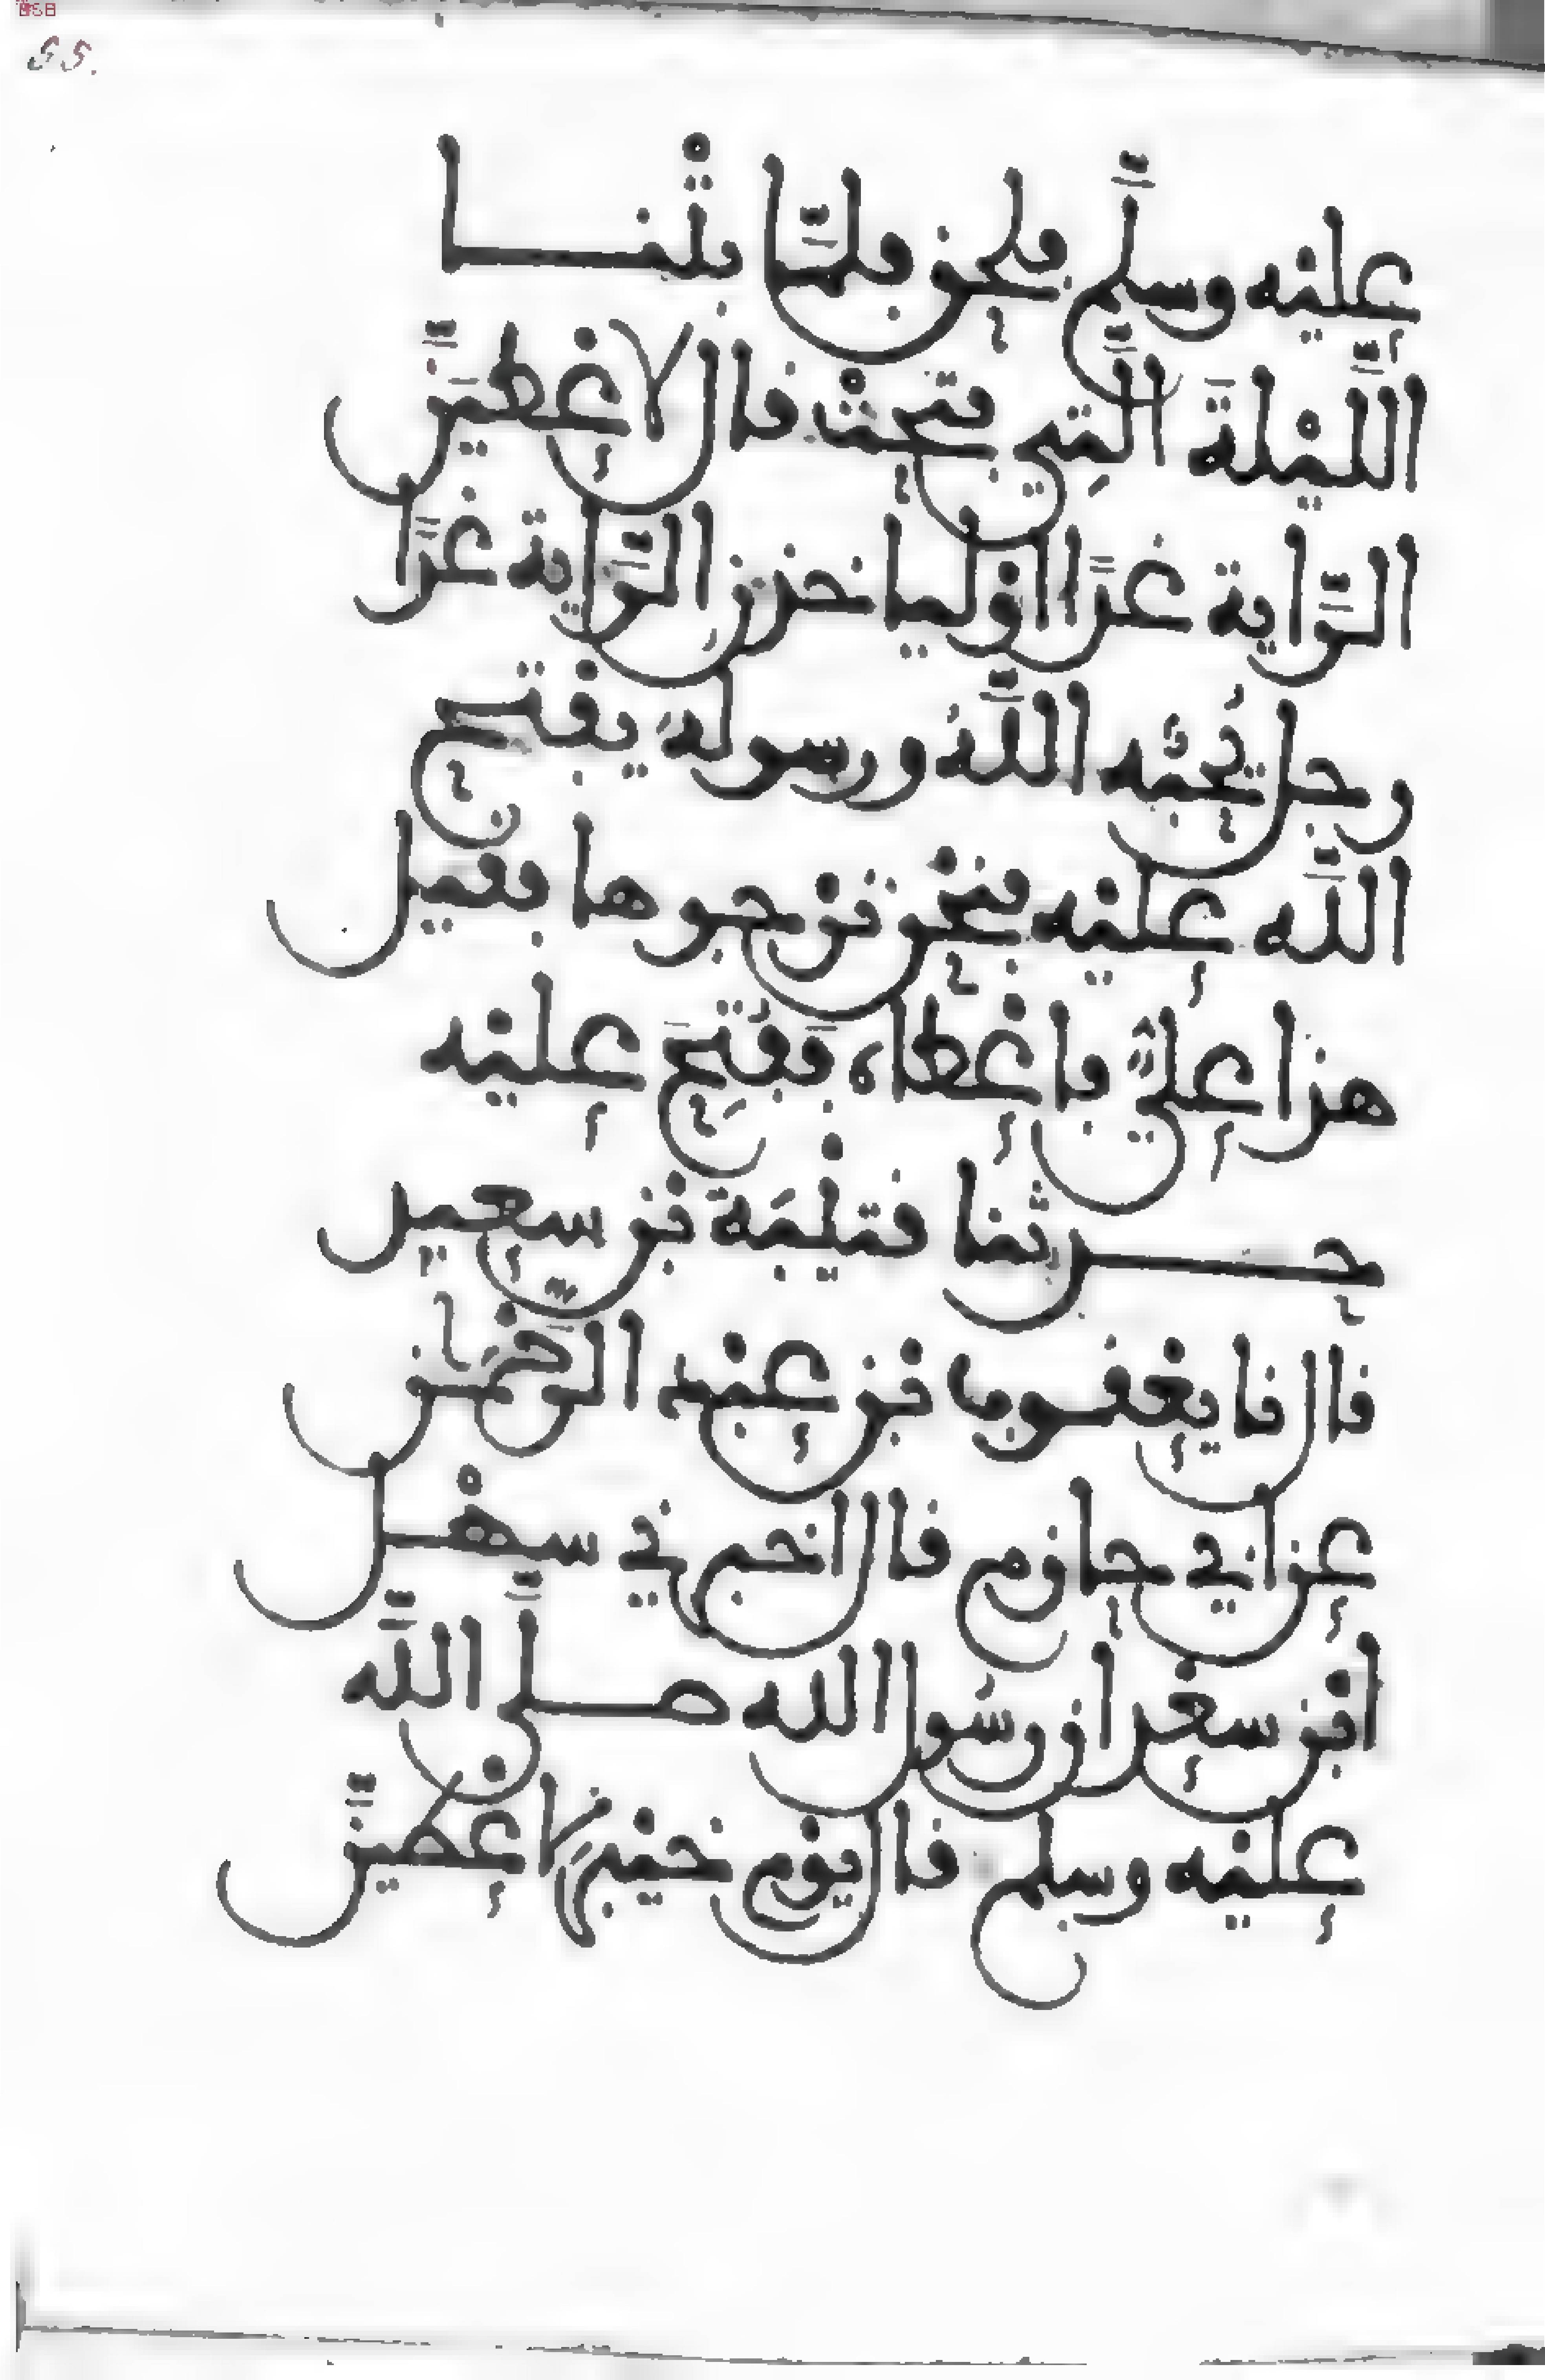 55.
عليْه وسلَّم فلحق فلمَّا بتْنا
اللَّيْلةَ الَّتِي فتحتْ قال لأعْطينَّ
الرَّاية غدًا أوْ ليأخذن الرَّاية غدًا
رجل يُحبُّه اللَّهُ ورسولهُ يفْتح
اللَّه عليْه فنحْن نرْجوها فقيل
هذا عليٌّ فأعْطاه ففُتِحَ عليْه
حدثنا قتيْبَة بْن سعيد
قال نا يعْقوب بْن عبْد الرَّحْمَان
عن أبي حازم قال أخبرني سهْل
ابْن سعْد أن رسُول الله صلَّى اللَّه
عليْه وسلم قال يوْم خيْبر لأعْطينَّ